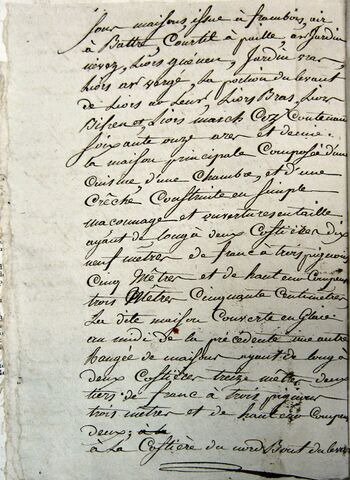 sous maisons, issue à frambois, air
à Battre, Courtil à paille, ar Jardin
nevez, Liors quenen, Jardin vras,
Liors ar vergé, La portion du levant
de Liors ar Leur, Liors Bras, Liors
Bihen et Liors march Coz Contenant
soixante onze ares et demie.
La maison principale Composée d'une
Cuisine, d'une Chambre, et d'une
Crêche Construite en simple
maconnage et ouvertures en taille
ayant de long à deux Costières Dix
neuf mètres de franc à trois pignons
Cinq Mètres et de hauteur Compensée
trois Mètres Cinquante Centimètres
La dite maison Couverte en Glaci
au midi de la précédente une autre
hangée de maison ayant de long à
deux Costières treize mètres deux
tiers de franc à trois pignons
trois mètres et de hauteur Compensée
deux; à la
à La Costière du nord Bout du levant